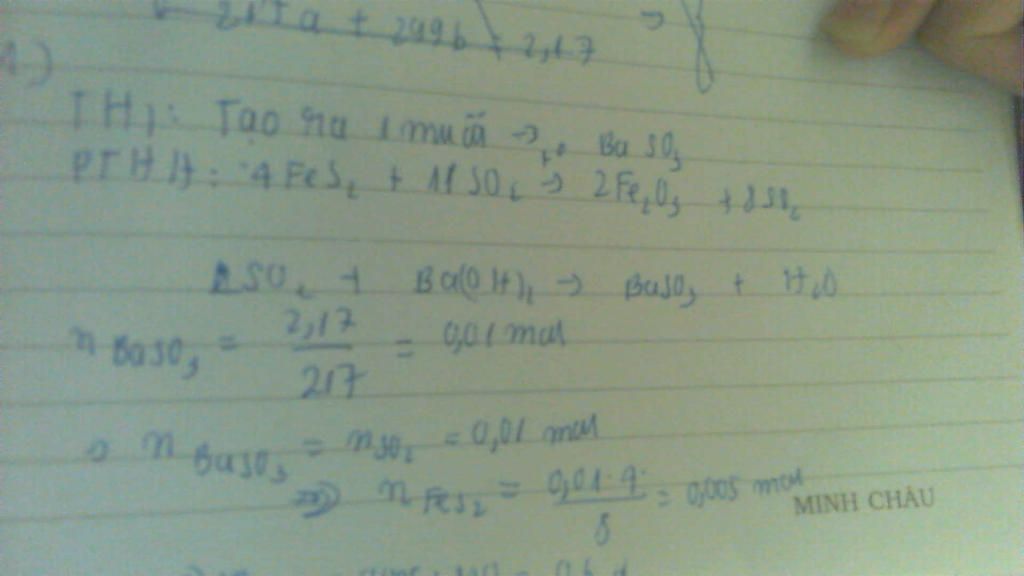 217a + 299b = 2,17 →
1.)
TH1: Tạo ra 1 muối → BaSO3
PTHH: 4FeS2 + 11SO2 → 2Fe2O3 + 8SO2
SO2 + Ba(OH)2 → BaSO3 + H2O
nBaSO3 = 2,17/217 = 0,01 mol
→ nBaSO3 = nSO2 = 0,01 mol
=> nFeS2 = 0,01.4/8 = 0,005 mol
MINH CHÂU